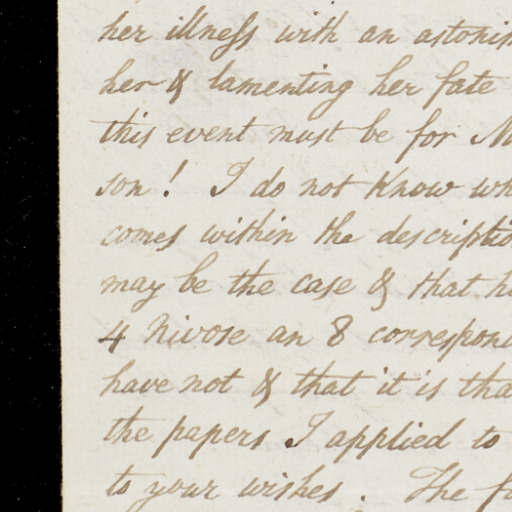 her illness with an astonis
her & lamenting her fate
this event must be for M
son! I do not know wh
comes within the descriptio
may be the case & that h
4 Nivose an 8 correspon
have not & that it is tha
the papers I applied to
to your wishes. The f